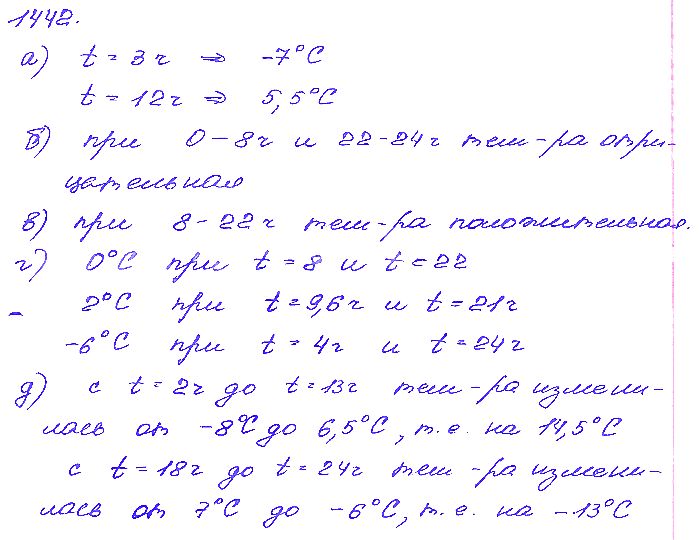 1442.
а) t = 3 ч ⇒ -7°C
t = 12 ч ⇒ 5,5°C
б) при 0-8 ч и 22-24 ч тем-ра отри-
цательная
в) при 8-22 ч тем-ра положительная.
г) 0°C при t = 8 и t = 22
2°C при t = 9,6 ч и t = 21 ч
-6°C при t = 4 ч и t = 24 ч
д) с t = 2 ч до t = 13 ч тем-ра измени-
лась от -8°C до 6,5°C, т.е. на 14,5°C
с t = 18 ч до t = 24 ч тем-ра измени-
лась от 7°C до -6°C, т.е. на -13°C